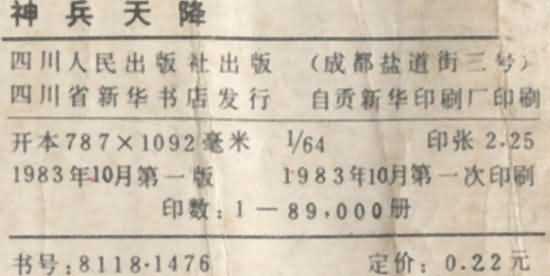 神兵天降
四川人民出版社出版 （成都盐道街三号）
四川省新华书店发行 自贡新华印刷厂印刷
开本787×1092毫米 1/64 印张 2.25
1983年10月第一版 1983年10月第一次印刷
印数：1—89,000册
书号：8118·1476 定价：0.22元